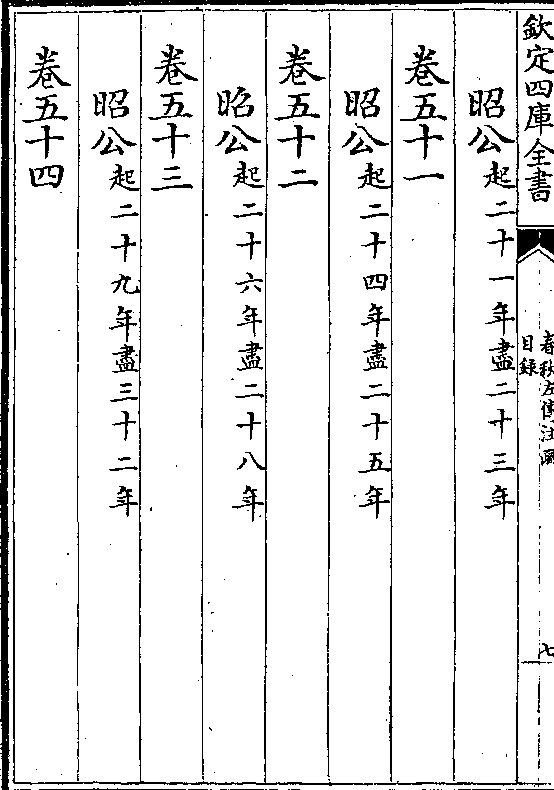 欽定四庫全書
春秋左傳注疏
目録
七
昭公起二十一年盡二十三年
卷五十一
昭公起二十四年盡二十五年
卷五十二
昭公起二十六年盡二十八年
卷五十三
昭公起二十九年盡三十二年
卷五十四